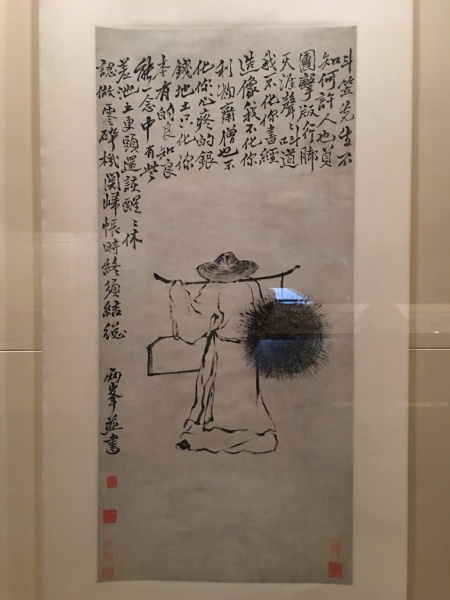 斗笠先生不
知何許人也負
團擊版行腳
天涯聲々叫道
我不化你書經
造像我不化你
利物齋僧也不
化你心疼的銀
錢地土只化你
本有的良知良
能一念中有些
差池五更頭還該醒々休
認做零碎機關帳時終須結總
兩峯並書